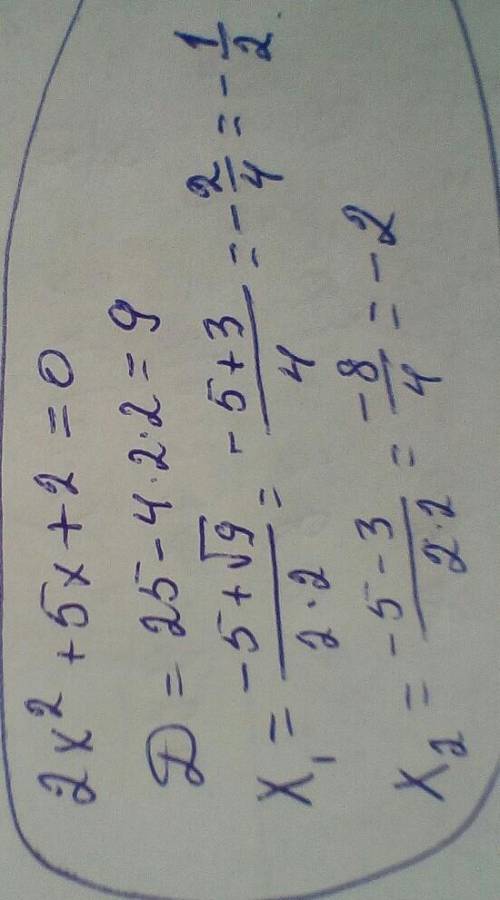 2x² + 5x + 2 = 0
D = 25 - 4·2·2 = 9
x₁ = \frac{-5+\sqrt{9}}{2·2} = \frac{-5+3}{4} = -\frac{2}{4} = -\frac{1}{2}.
x₂ = \frac{-5-3}{2·2} = \frac{-8}{4} = -2